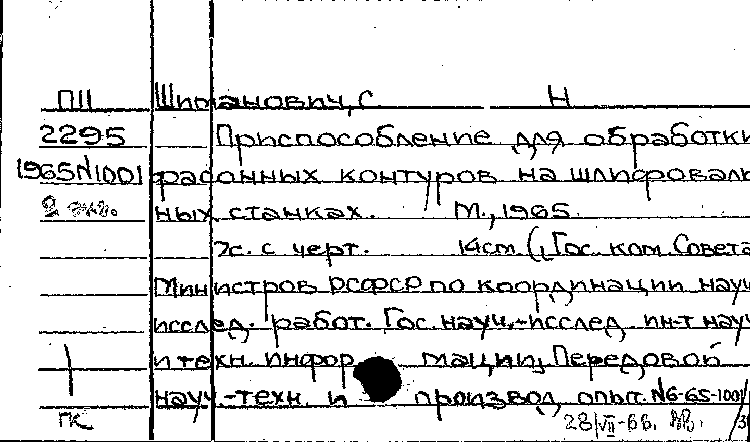 ПII Шиманович, С Н
2295 Приспособление для обработки
1965N1001 фасонных контуров на шлифоваль
2 экз. ных станках. М., 1965.
7с. с черт. 14см (Гос. ком. Совета
Министров РСФСР по координации науч
исслед. работ. Гос. науч.-исслед. ин-т науч
и техн. инфор мации. Передовой
науч.-техн. и производ. опыт. N6-65-1001/
ПК 28/VII-66.